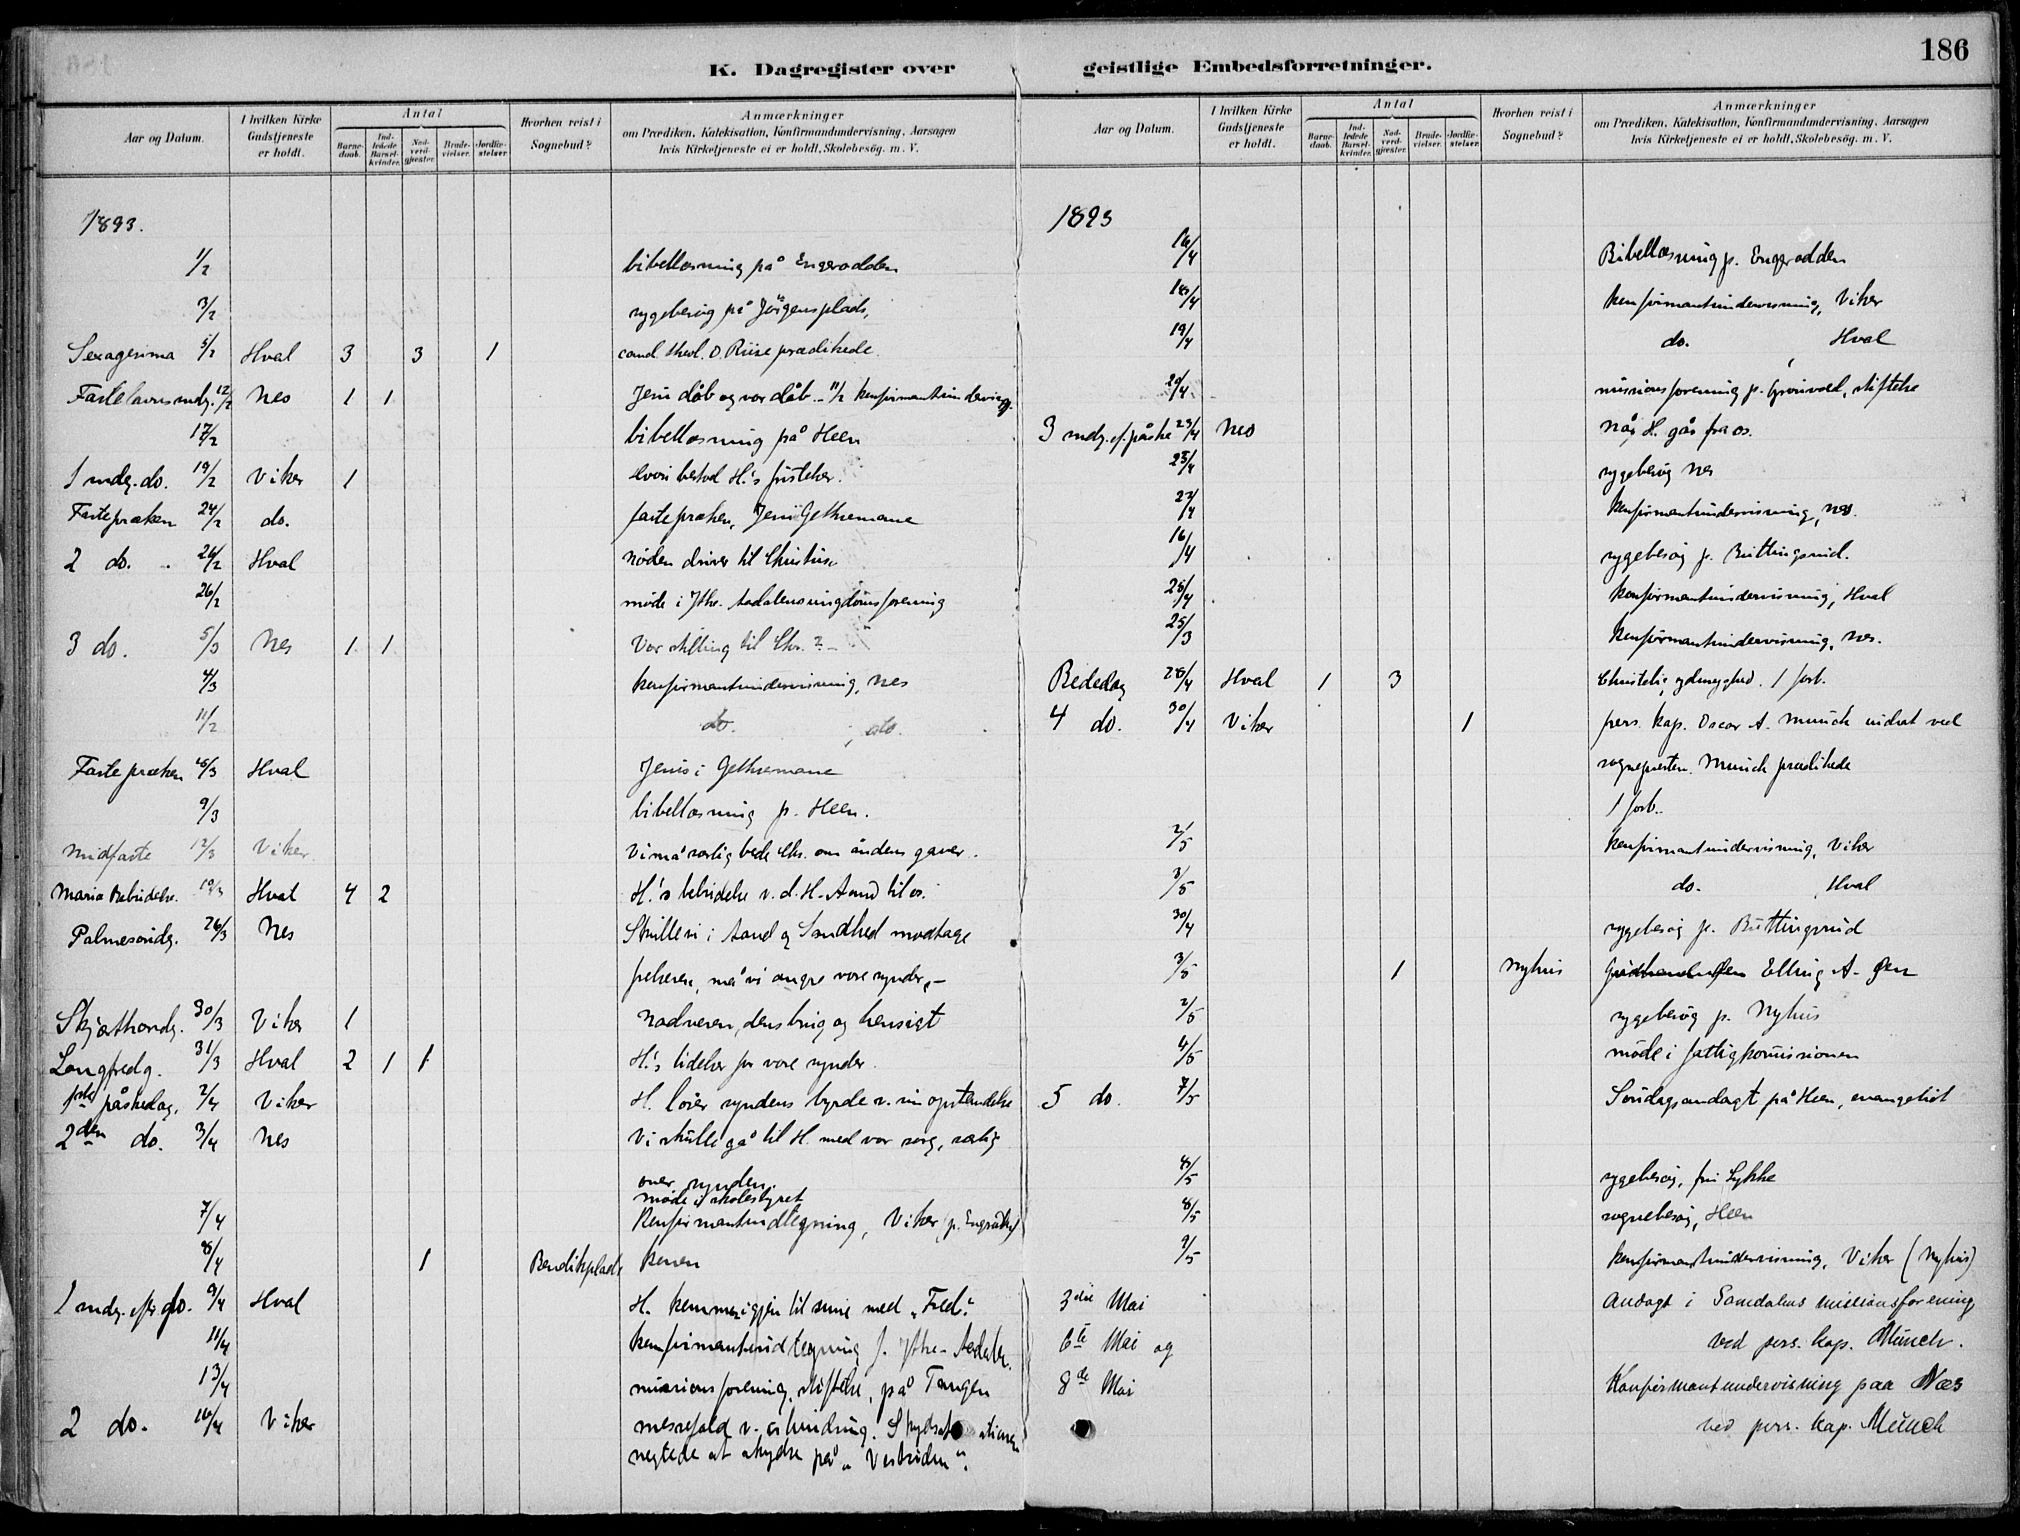 186
K. Dagregister over geistlige Embedsforretninger.
Aar og Datum. I hvilken Kirke Gudstjeneste er holdt. Antal Barnedaab. Indledede Barselkvinder. Nadverdgjester. Brudevielser. Jordfæstelser. Hvorhen reist i Sognebud? Anmærkninger om Prædiken, Katekisation, Konfirmandundervisning, Aarsagen hvis Kirketjeneste ei er holdt, Skolebesøg. m. V.
1893.
1/2 bibellæsning på Engerodden
3/2 sygebesøg på Jörgensplads,
Sexagesima 5/2 Hval 3 3 1 cand. theol. O. Riise prædikede.
Fastelavnsndg. 12/2 Nes 1 1 Jesu dåb og vor dåb. – 11/2 konfirmantundervisng.
17/2 bibellæsning på Heen
1 sndg. do. 19/2 Viker 1 Hvori bestod H.'s fristelser.
Fastepræken 24/2 do. fastepræken, Jesu i Gethsemane
2 do. 26/2 Hval nöden driver til Christus.
26/2 möde i Ythr. Aadalens ungdomsforening
3 do. 5/3 Nes 1 1 Vor stilling til Chr.? –
4/3 konfirmantundervisning, Nes
11/2 do. , do.
Fastepræken Hval Jesus i Gethsemane
9/3 bibellæsning p. Heen.
Midfaste 12/3 Viker Vi må særlig bede Chr. om åndens gaver.
Maria bebudelse. 19/3 Hval 4 2 H.'s bebudelse v. d. H. Aand til os.
Palmesöndg. 26/3 Nes Skulle vi i Aand og Sandhed modtage
frelseren, må vi angre vore synder. –
Skjærthorsdg. 30/3 Viker 1 Nadveren, dens brug og hensigt
Langfredg. 31/3 Hval 2 1 1 H.'s lidelser for vore synder.
1ste påskedag, 2/4 Viker H. löser syndens byrde v. sin opstandelse
2den do. 3/4 Nes Vi skulle gå til H. med vor sorg, særlig
over synden.
möde i skolestyret
7/4 Konfirmantindtegning, Viker
8/4 1 Bendikplads Konen
1 sndg. eft. do. 9/4 Hval H. kommer igjen til sine med "Fred".
11/4 konfirmantindtegning f. Ythr. Aadalen.
13/4 missionsforening, stiftelse, på Tangen
2 do. 16/4 Viker messefald v. Skydsstationen
negtede at skydse på "Vestsiden".
Aar og Datum. I hvilken Kirke Gudstjeneste er holdt. Antal Barnedaab. Indledede Barselkvinder. Nadverdgjester. Brudevielser. Jordfæstelser. Hvorhen reist i Sognebud? Anmærkninger om Prædiken, Katekisation, Konfirmandundervisning, Aarsagen hvis Kirketjeneste ei er holdt, Skolebesøg. m. V.
1893
16/4 Bibellæsning p. Engerodden
18/4 konfirmantundervisning, Viker
19/4 do. , Hval
20/4 missionsforening p. stiftelse
3 sndg. e. påske 23/4 Nes Når H. går fra os.
25/4 sygebesög Nes
27/4 konfirmantundervisning, Nes.
16/4 sygebesög p. Buttingsrud.
konfirmantundervisning, Hval
25/3 konfirmantundervisning, Nes.
Bededag 28/4 Hval 1 3 Christelig ydmyghed. 1 forb.
4 do. 30/4 Viker 1 pers. kap. Oscar A. Munch indsat ved
sognepresten. Munch prædikede
1 forb.
2/5 konfirmantundervisning, Viker
3/5 do. , Hval
30/4 sygebesög p. Buttingsrud
3/5 1 Nyhus Elling A.
2/5 sygebesög p. Nyhus
4/5 möde i fattigkommissionen
5 do. 7/5 Söndagsandagt på Heen, evangeliet
8/5 sygebesög, fru Lykke
8/5 sognebesög, Heen
9/5 konfirmantundervisning, Viker (Nyhus)
3die Mai Andagt i Somdalens missionsforening
6te Mai og ved pers. kap. Münch.
8de Mai Konfirmantundervisning paa Næs
ved pers. kap. Münch